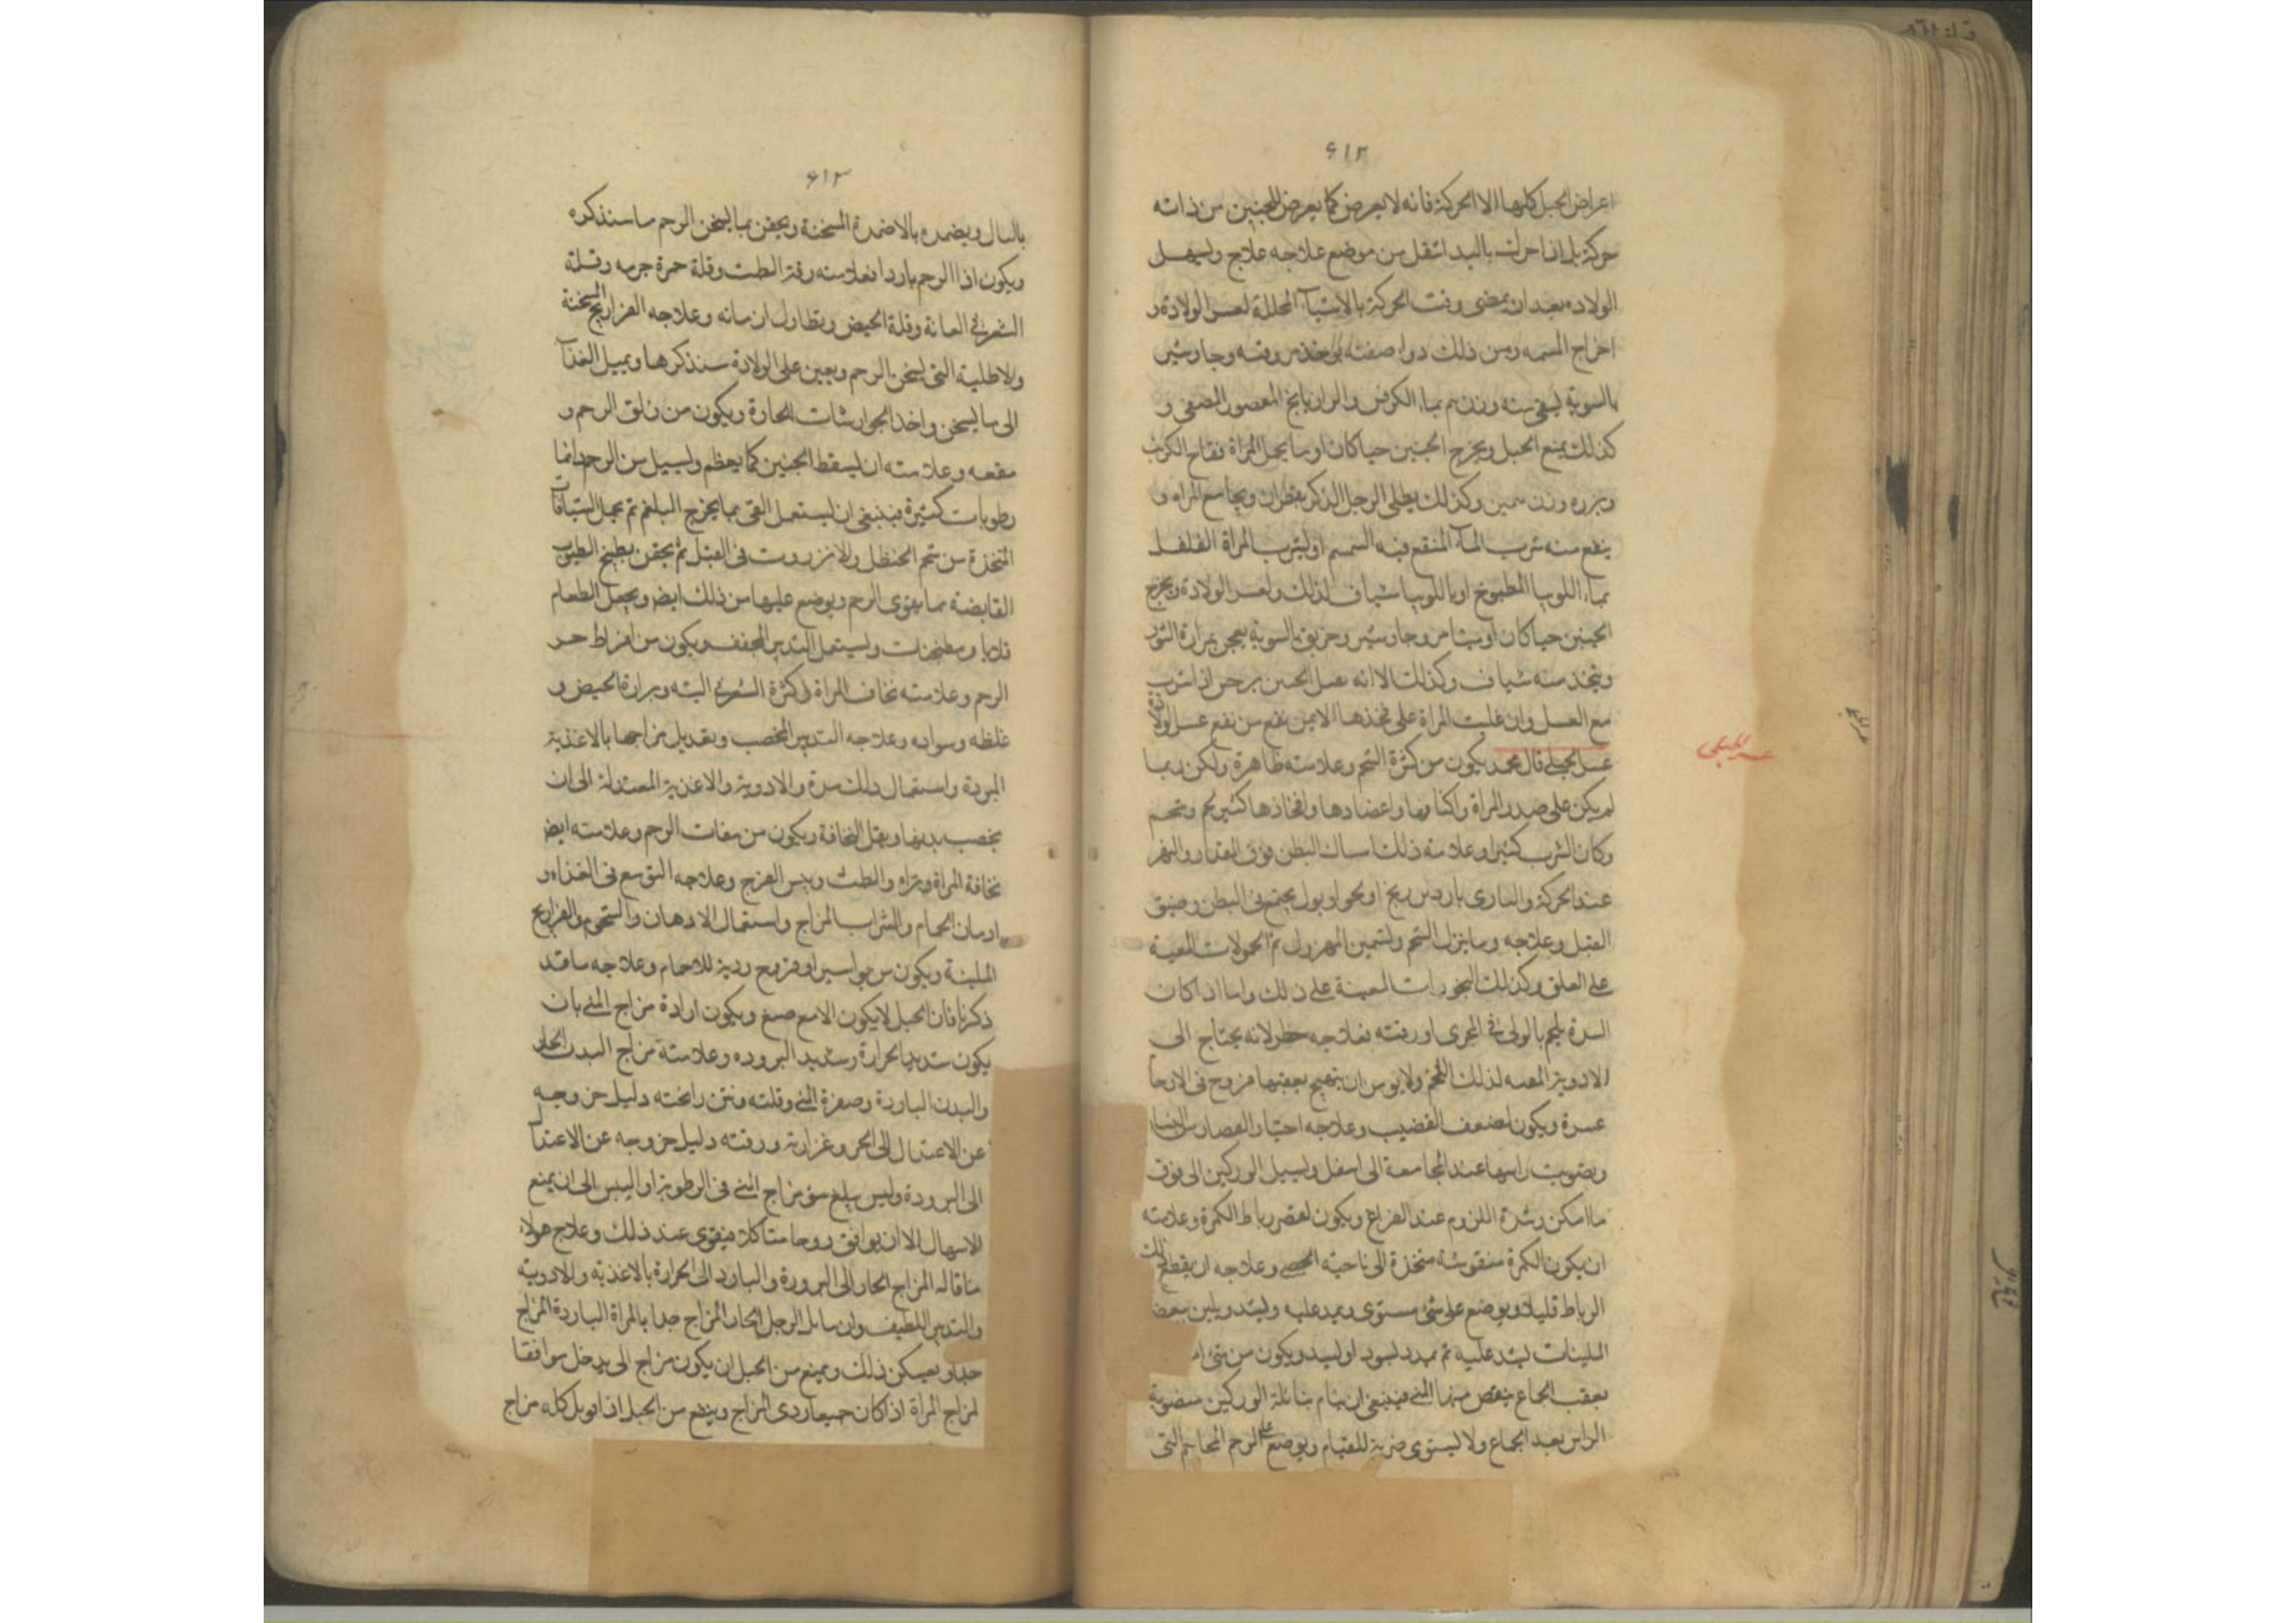 ٦١٢
اعراض الحبل كلها الا الحركة فانه لا يعرض كما يعرض للجنين من ذاته
حركة بل اذا حركت باليد انتقل من موضع علاجه علاج ويسهل
الولاده بعد ان يمضى وقت الحركة بالاشيآ المحللة لعسر الولادة و
اخراج المسمه ومن ذلك دوا صفته يوخذ مر وقنه وجاوشير
بالسوية يسقى منه وزن بماء الكرفس والرازيانج المعصور المصفى و
كذلك يمنع الحبل ويخرج الجنين حيا كان او ميتا يحمل المراة فقاح الكرنب
وبزره وزن وكذلك يطلى الرجل الذكر بقطران ويجامع المراه و
ينفع منه شرب المآء المنقع فيه السمسم او يشرب المراة الفلفل
بماء اللوبيا المطبوخ او باللوبيا شياف لذلك ولعسر الولادة ويخرج
الجنين حيا كان او ميتا مر وجاوشير وخربق بالسوية يعجن بمرارة الثور
ويتخذ منه شياف وكذلك الا انه اذا شرب
مع العسل وان غلبت المراة على فخذها الايمن نفع من عسر الولادة
عسر الحبلى قال محمد يكون من كثرة الشحم وعلامته ظاهرة ولكن ربما
لم يكن على صدر المراة واكتافها واعضادها وافخاذها كثير لحم وشحم
وكان الثرب كثيرا وعلامته ذلك امساك البطن فوق المقدار والبهر
عند الحركة والتاذى بادنى ريح او نجو او بول يجتمع فى البطن وضيق
القبل وعلاجه وما ينزل الشحم وتسمين المهزول ثم الحمولات المعينة
على العلق وكذلك البخورات المعينة على ذلك واما اذا كان
السرة يلجم فى المجرى او رقته فعلاجه خطر لانه يحتاج الى
الادوية لذلك اللحم ولا يومن ان يهيج بعقبها قروح فى الارحام
عسرة ويكون لضعف القضيب وعلاجه اختيار القصار من النساء
وتصويب راسها عند المجامعة الى اسفل وتسيل الوركين الى فوق
ما امكن وشدة اللزوم عند الفراغ ويكون لقصر رباط الكمرة وعلامته
ان يكون الكمرة منقوشة منجذبة الى ناحية الخصى وعلاجه ان يقطع ذلك
الرباط قليلا ويوضع على شئ مستوى ويمد عليه ويشد ويلين ببعض
الملينات ليشد عليه ثم يمرد ويكون من شئ
بعقب الجماع ينقض منها المنى فينبغى ان ينام شائلة الوركين منصوبة
الراس بعد الجماع ولا يستوى ضربة للقيام ويوضع على الرحم المحاجم التى
عسر الحبلى
٦١٣
بالسال ويضمده بالاضمدة المسخنة ويحقن بما يسخن الرحم ما سنذكره
ويكون اذا الرحم باردا فعلامته رقة الطمث وقلة حمرة جرمه وقلة
الشعر فى العانة وقلة الحيض وتطاول ازمانه وعلاجه الفرازيج المسخنة
والاطلية التى يسخن الرحم ويعين على الولادة سنذكرها ويميل الغذآ
الى ما يسخن واخذ الجوارشات الحارة ويكون من زلق الرحم و
مقعه وعلامته ان يسقط الجنين كما يعظم ويسيل من الرحم دائما
رطوبات كثيرة فينبغى ان يستعمل القئ بما يخرج البلغم ثم يحمل الشيافات
المتخذة من شحم الحنظل والانزروت فى القبل ثم يحقن بطبيخ الطيوب
القابضة مما يقوى الرحم ويوضع عليها من ذلك ايض ويجعل الطعام
قلايا ومطجنات ويستعمل التدبير المجفف ويكون من افراط حر
الرحم وعلامته نخافة المراة وكثرة الشعر فى البته ومرارة الحيض و
غلظه وسواده وعلاجه التدبير المخصب وتعديل مزاجها بالاغذية
المبردة واستعمال ذلك مدة والادوية والاغذية المعتدلة الى ان
يخصب بدنها ويقل النحافة ويكون من صفات الرحم وعلامته ايض
نحافة المراة والطمث ويبس الفرج وعلاجه التوسع فى الغذاء و
ادمان الحمام والشراب المزاج واستعمال الادهان والشحوم والفرازيج
الملينة ويكون من بواسير او قروح ردية للارحام وعلاجه ما قد
ذكرنا فان الحبل لا يكون الا مع صبغ ويكون ارادة مزاج المنى بان
يكون شديد الحرارة وشديد البروده وعلامته مزاج البدن الحار
والبدن الباردة وصفرة المنى وقلته ونتن رائحته دليل خروجه
عن الاعتدال الى الحر وغزارته ورقته دليل خروجه عن الاعتدآل
الى البرودة وليس يبلغ سوء مزاج المنى فى الرطوبة او اليبس الى ان يمنع
الاسهال الا ان يوافق روحا متاكلا فيقوى عند ذلك وعلاج هولاء
مناقاله المزاج الحار الى البرودة والبارد الى الحرارة بالاغذية والادوية
والتدبير اللطيف وان سايل الرجل الحار المزاج جدا بالمراة الباردة المزاج
جدا وبعكس ذلك ويمنع من الحبل ان يكون مزاج الى يدخل موافقا
لمزاج المراة اذا كان جميعا ردى المزاج ويمنع من الحبل اذا قوبل كله مزاج